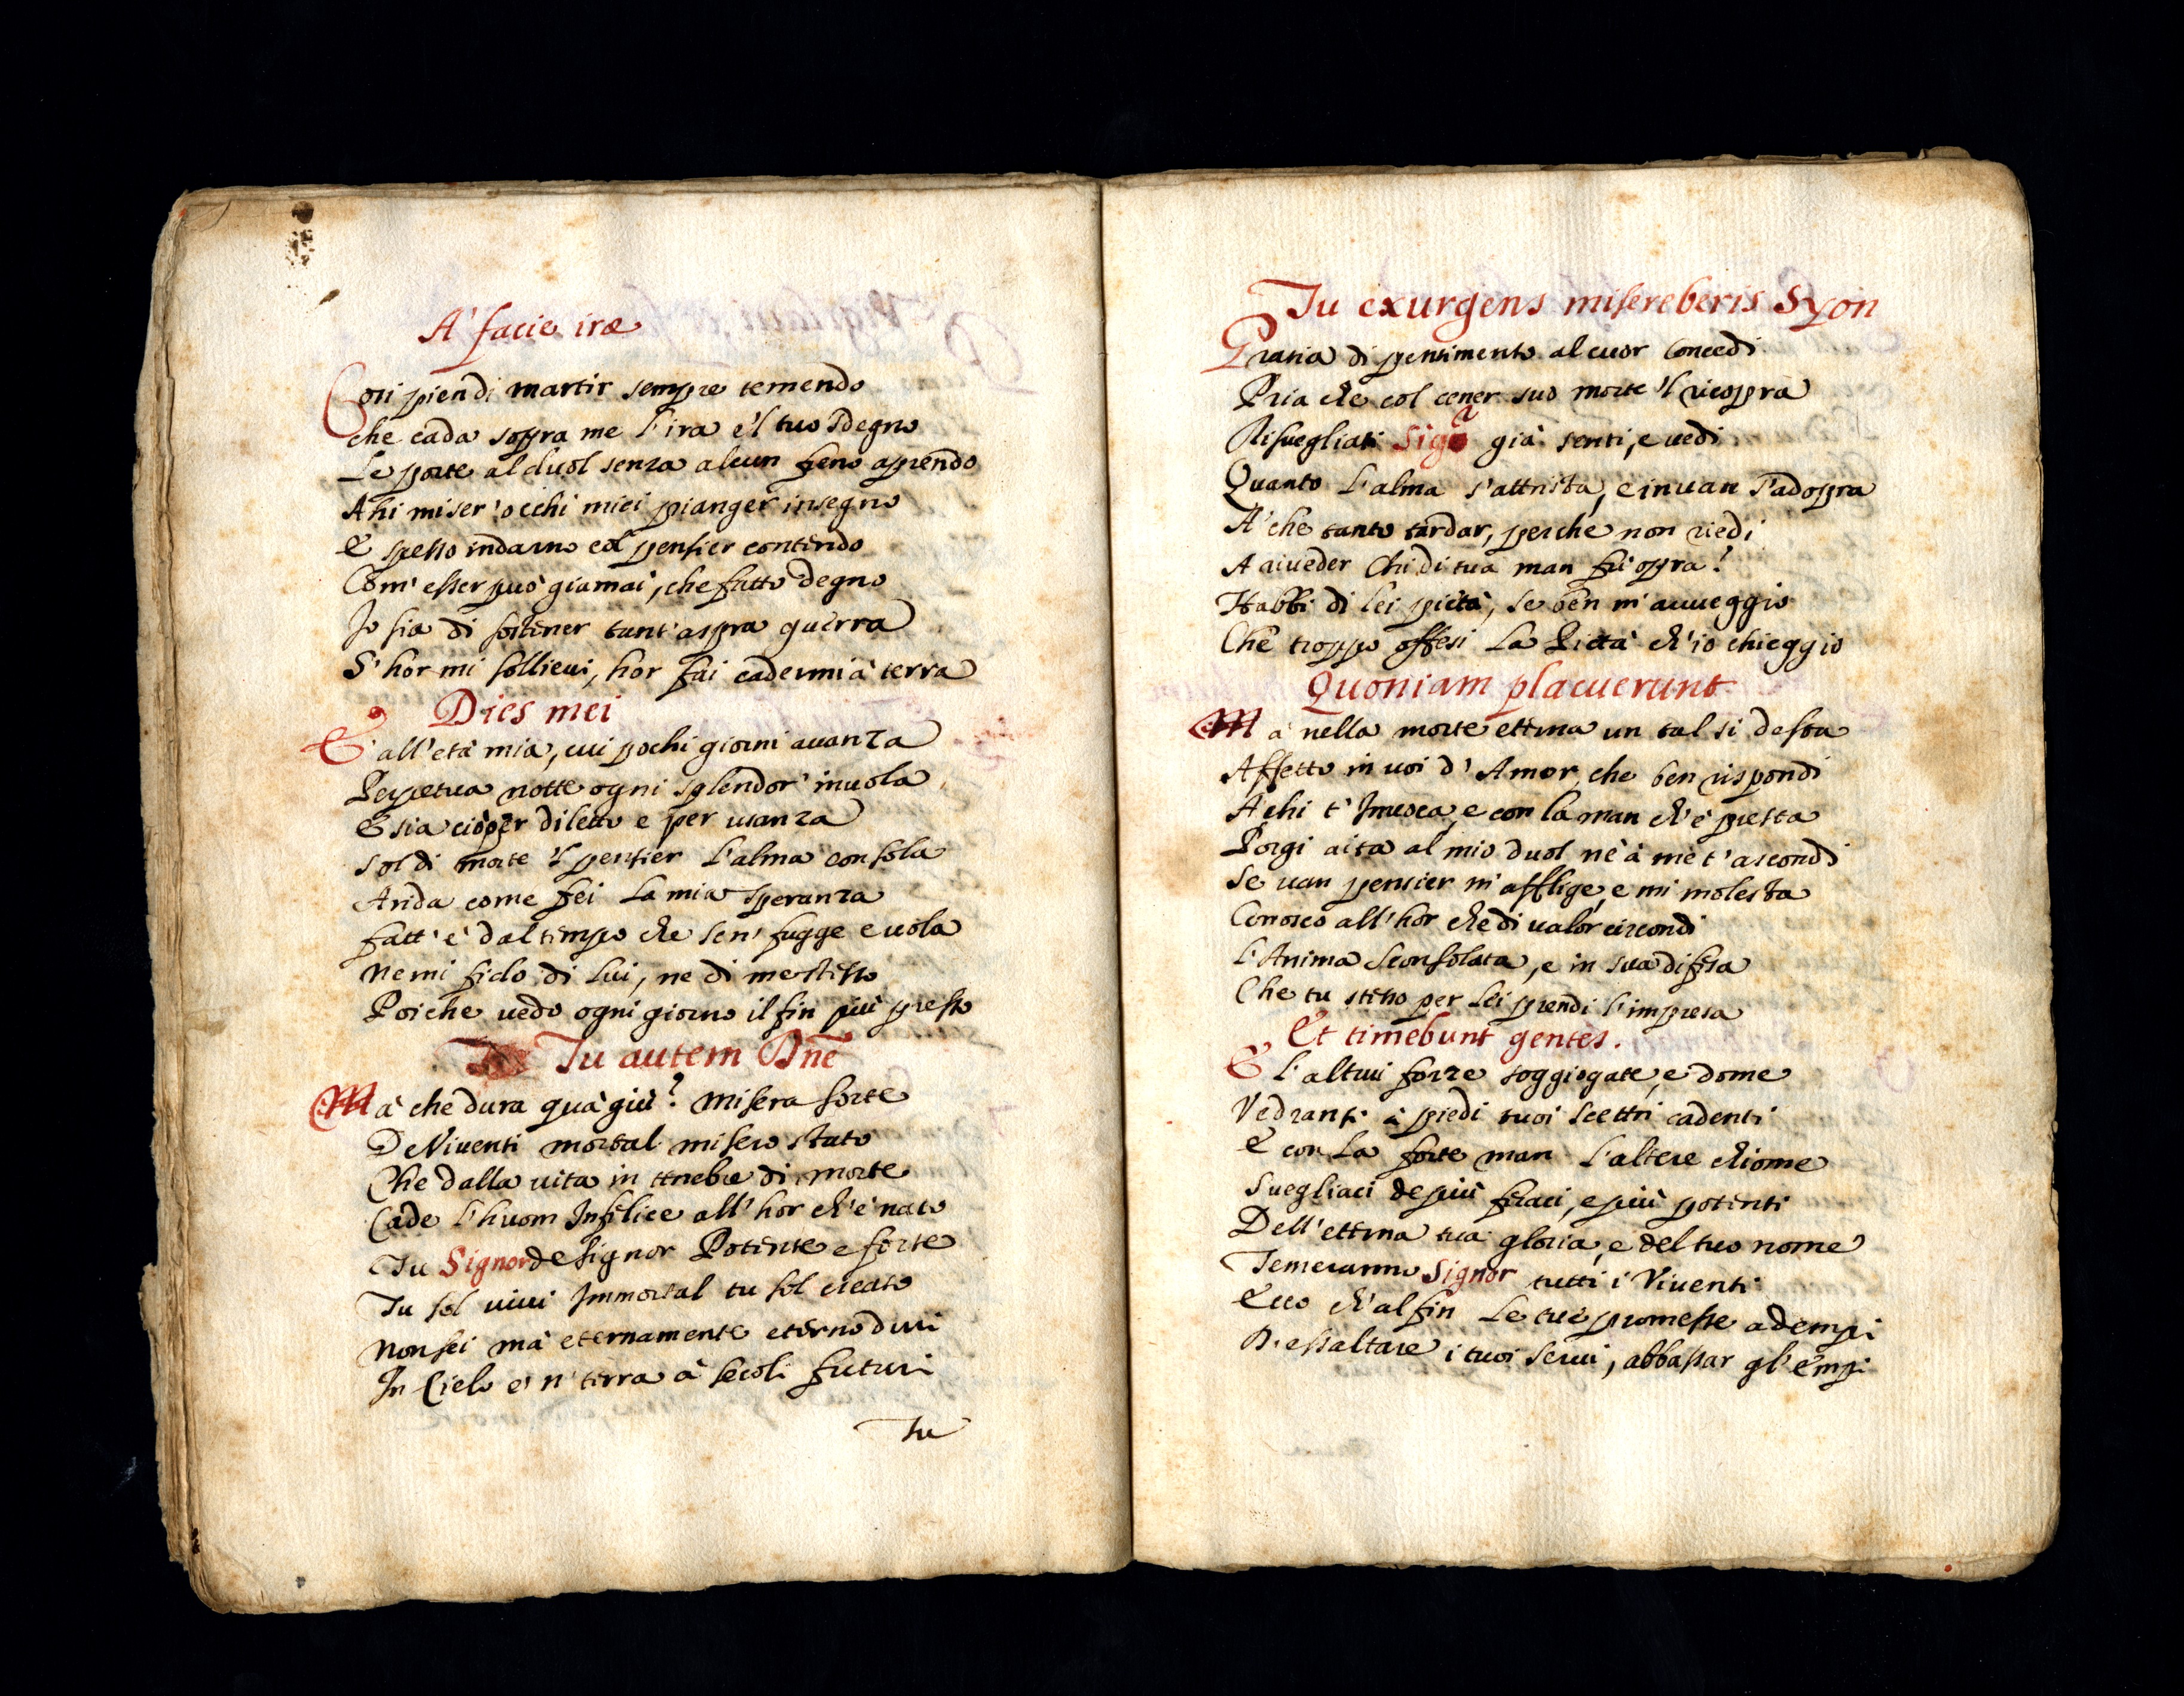 A' facie iræ
Cosi pien di martir sempre temendo
che cada sopra me l'ira e'l tuo sdegno
Le porte al duol senza alcun freno aprendo
Ahi miser'occhi miei pianger insegno
E spesso indarno col pensier contendo
Com' esser può giamai, che fatto degno
Io sia di sostener tant'aspra guerra
S'hor mi sollieui, hor fai cadermi à terra
Dies mei
E' all'età mia, cui pochi giorni auanza
Perpetua notte ogni splendor' inuola
E sia ciò per diletto e per usanza
Sol di morte 'l pensier l'alma consola
Arida come fei la mia speranza
fatt'è dal tempo che sen' fugge e uola
Ne mi fido di lui, ne di me stesso
Poiche uedo ogni giorno il fin più presso
Tu autem Dñe
Mà che dura quà giù? misera sorte
De Viuenti mortal misero stato
Che dalla uita in tenebre di morte
Cade l'huom Infelice all'hor ch'è nato
Tu Signor de Signor Potente e forte
Tu sol uiui Immortal tu sol creato
Non sei mà eternamente eterno duri
In Cielo e' n' terra à secoli futuri
Tu
Tu exurgens misereberis Syon
Gratia di pentimento al cuor concedi
Pria che col cener suo morte 'l ricopra
Risuegliati Sigr già senti, e uedi
Quanto l'alma s'attrista, e inuan s'adopra
A' che tanto tardar, perche non riedi
A riueder chi di tua man fù opra?
Habbi di lei pietà, se ben m'auueggio
Che troppo offesi la Pietà ch'io chieggio
Quoniam placuerunt
Mà nella morte etterna un tal si desta
Affetto in uoi d'Amor, che ben rispondi
A chi t'Inuoca, e con la man ch'è presta
Porgi aita al mio duol nè à me t'ascondi
Se uan pensier m'afflige, e mi molesta
Conosco all'hor che di ualor circondi
L'Anima sconsolata, e in sua difesa
Che tu stesso per lei prendi l'impresa
Et timebunt gentes.
E l'altrui forze soggiogate, e dome
Vedransi à piedi tuoi scettri cadenti
E con la forte man l'altere chiome
Suegliaci de più feraci, e più potenti
Dell'etterna tua gloria, e del tuo nome
Temeranno Signor tutti i Viuenti
Ecco ch'al fin le tue promesse adempi
D'essaltare i tuoi serui, abbassar gl'empi